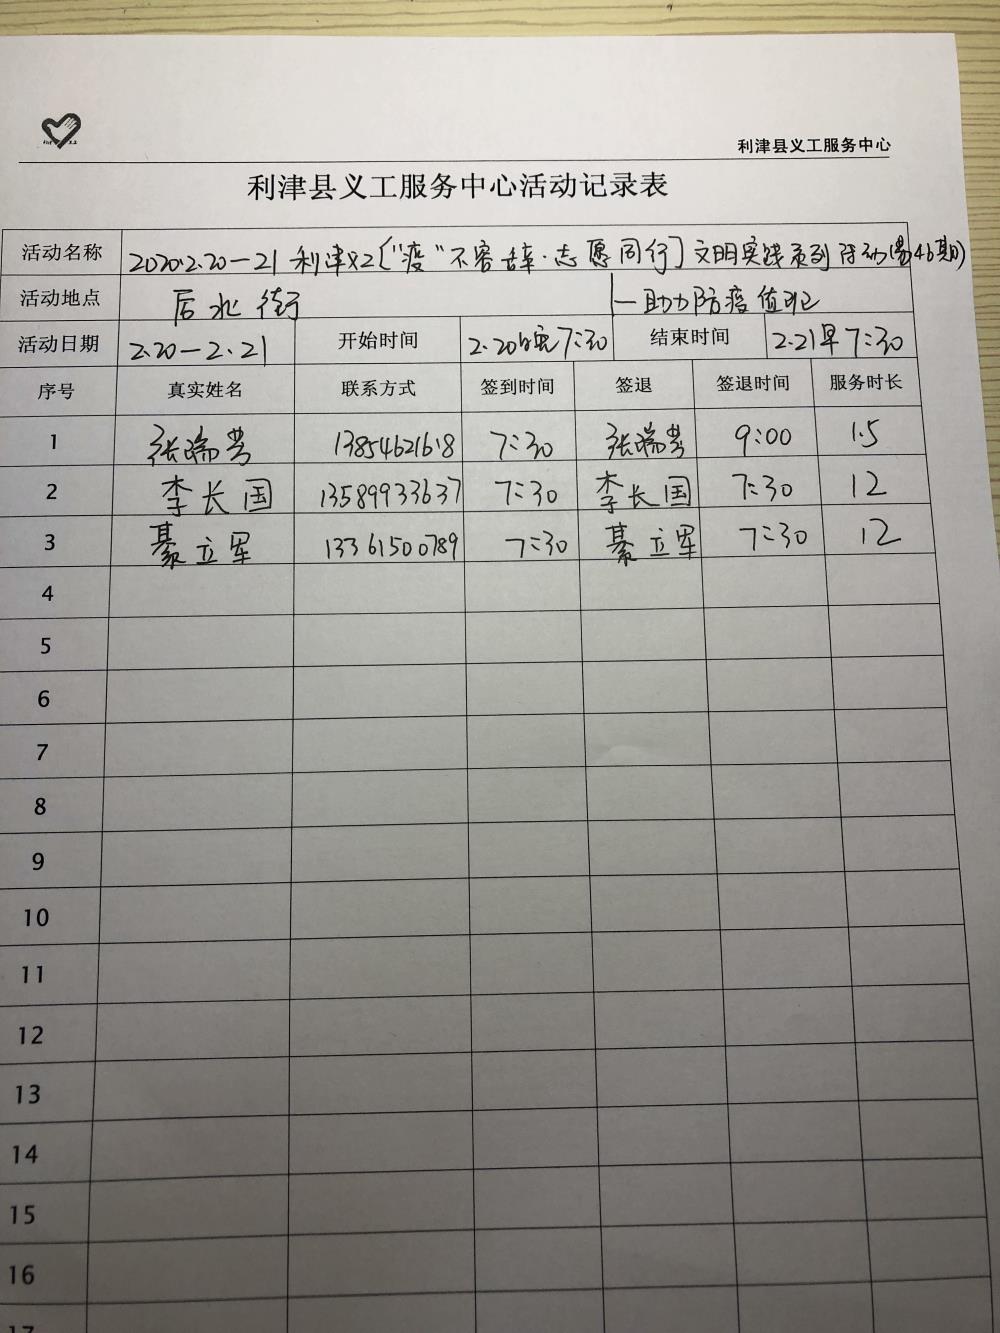 利津县义工服务中心
利津县义工服务中心活动记录表
活动名称 2020.2.20—21 利津义工〔“疫”不容辞·志愿同行〕文明实践系列活动(第46期)
活动地点 后北街 —助力防疫值班
活动日期 2.20—2.21 开始时间 2.20晚7:30 结束时间 2.21早7:30
序号 真实姓名 联系方式 签到时间 签退 签退时间 服务时长
1 张瑞芳 7:30 张瑞芳 9:00 1.5
2 李长国 13589933637 7:30 李长国 7:30 12
3 綦立军 13361500789 7:30 綦立军 7:30 12
4
5
6
7
8
9
10
11
12
13
14
15
16
17